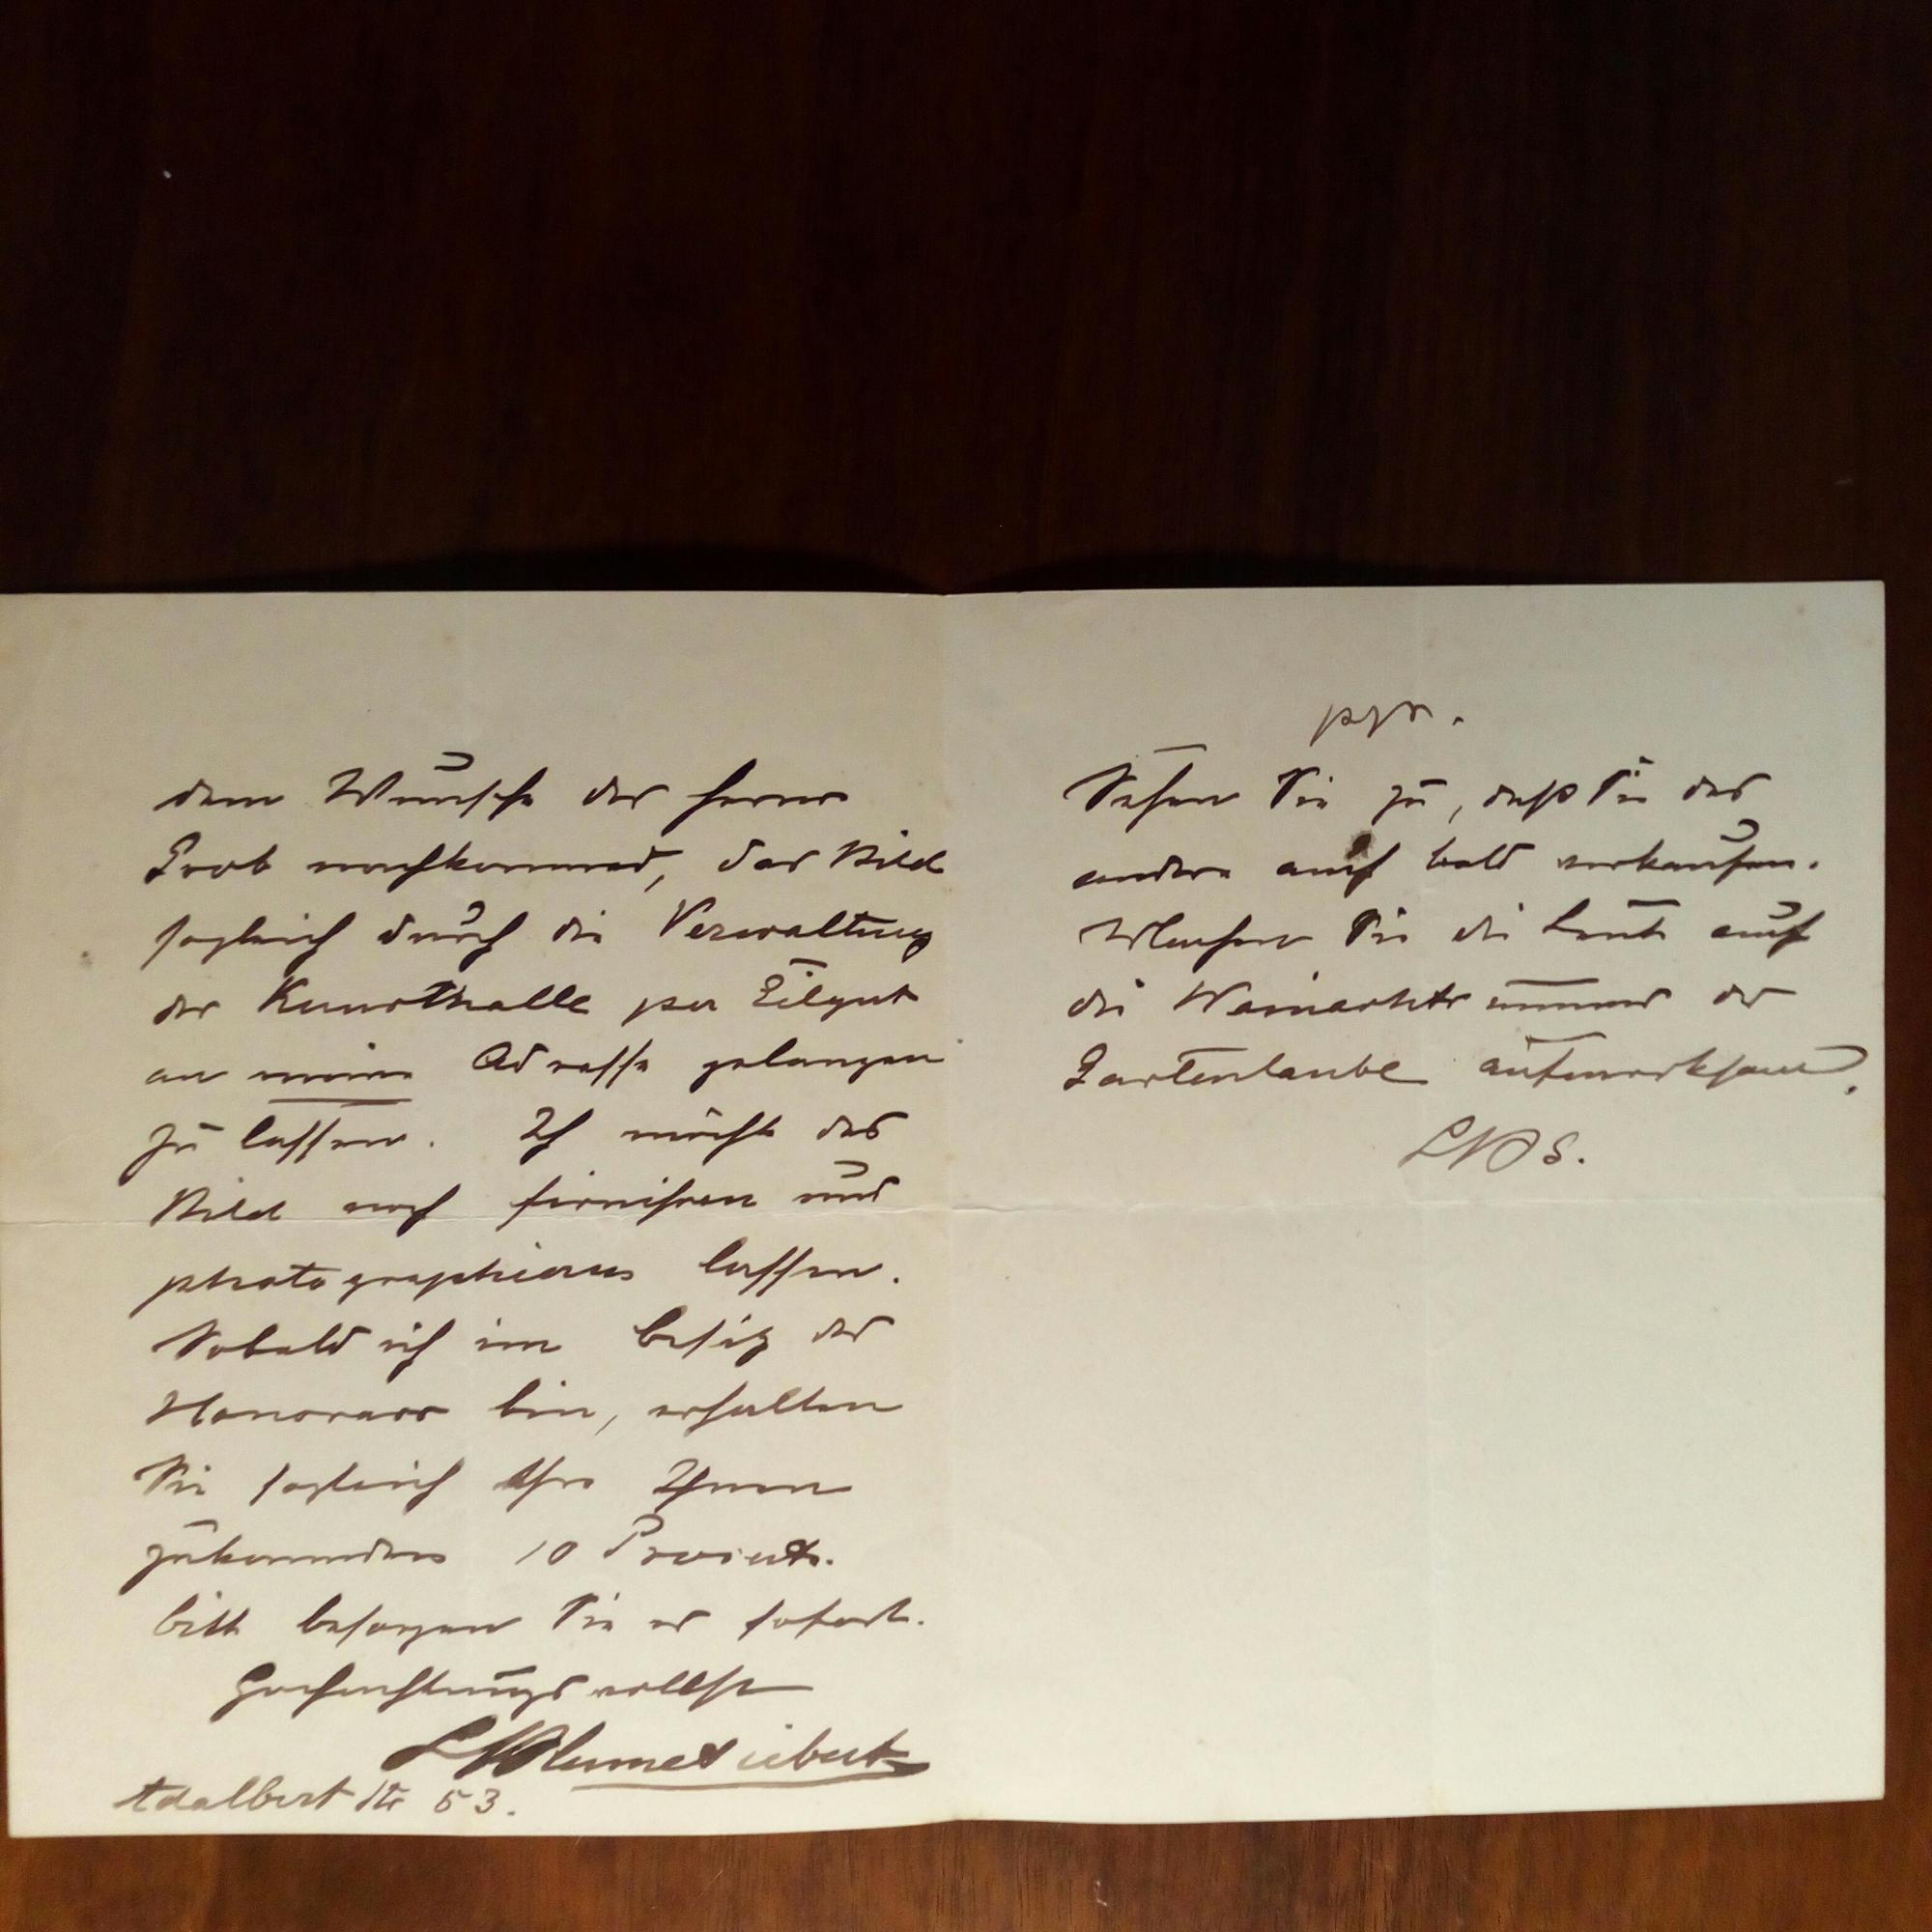 dem Wunsche des Herrn
Grob nachkommend, das Bild
sogleich durch die Verwaltung
der Kunsthalle per Eilgut
an meine Adresse gelangen
zu lassen. Ich möchte das
Bild noch firnissen und
photographieren lassen.
Sobald ich im Besitz des
Honorars bin, erhalten
Sie sogleich Ihre Ihnen
zukommenden 10 Procent.
Bitte besorgen Sie es sofort.
Hochachtungsvollst
L Blume Siebert
Adalbert Str 53.
Sehen Sie zu, daß Sie das
andere auch bald verkaufen.
Machen Sie die Leute auf
die Weinachtsnummer der
Gartenlaube aufmerksam.
LBS.